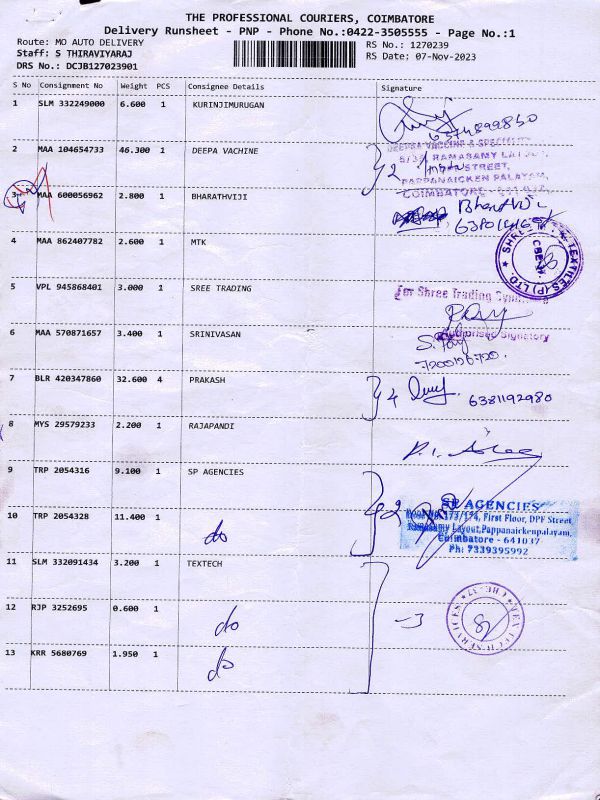 THE PROFESSIONAL COURIERS, COIMBATORE
Delivery Runsheet - PNP - Phone No.:0422-3505555 - Page No.:1
Route: MO AUTO DELIVERY RS No.: 1270239
Staff: S THIRAVIYARAJ RS Date: 07-Nov-2023
DRS No.: DCJB127023901
S No Consignment No Weight PCS Consignee Details Signature
1 SLM 332249000 6.600 1 KURINJIMURUGAN
2 MAA 104654733 46.300 1 DEEPA VACHINE
2
RAMASAMY
STREET,
PAPPANAICKEN PALAYAM,
COIMBATORE
3 MAA 600056962 2.800 1 BHARATHVIJI
4 MAA 862407782 2.600 1 MTK
TEXTILES (P) LTD.
5 VPL 945868401 3.000 1 SREE TRADING
For Shree Trading
Signatory
6 MAA 570871657 3.400 1 SRINIVASAN
7200126720.
7 BLR 420347860 32.600 4 PRAKASH
4 6381192980
8 MYS 29579233 2.200 1 RAJAPANDI
9 TRP 2054316 9.100 1 SP AGENCIES
2
SP AGENCIES
First Floor, DPF Street
Layout, Pappanaickenpalayam,
Coimbatore - 641037
Ph: 7339395992
10 TRP 2054328 11.400 1 do
11 SLM 332091434 3.200 1 TEXTECH
12 RJP 3252695 0.600 1 do
-3
13 KRR 5680769 1.950 1 do